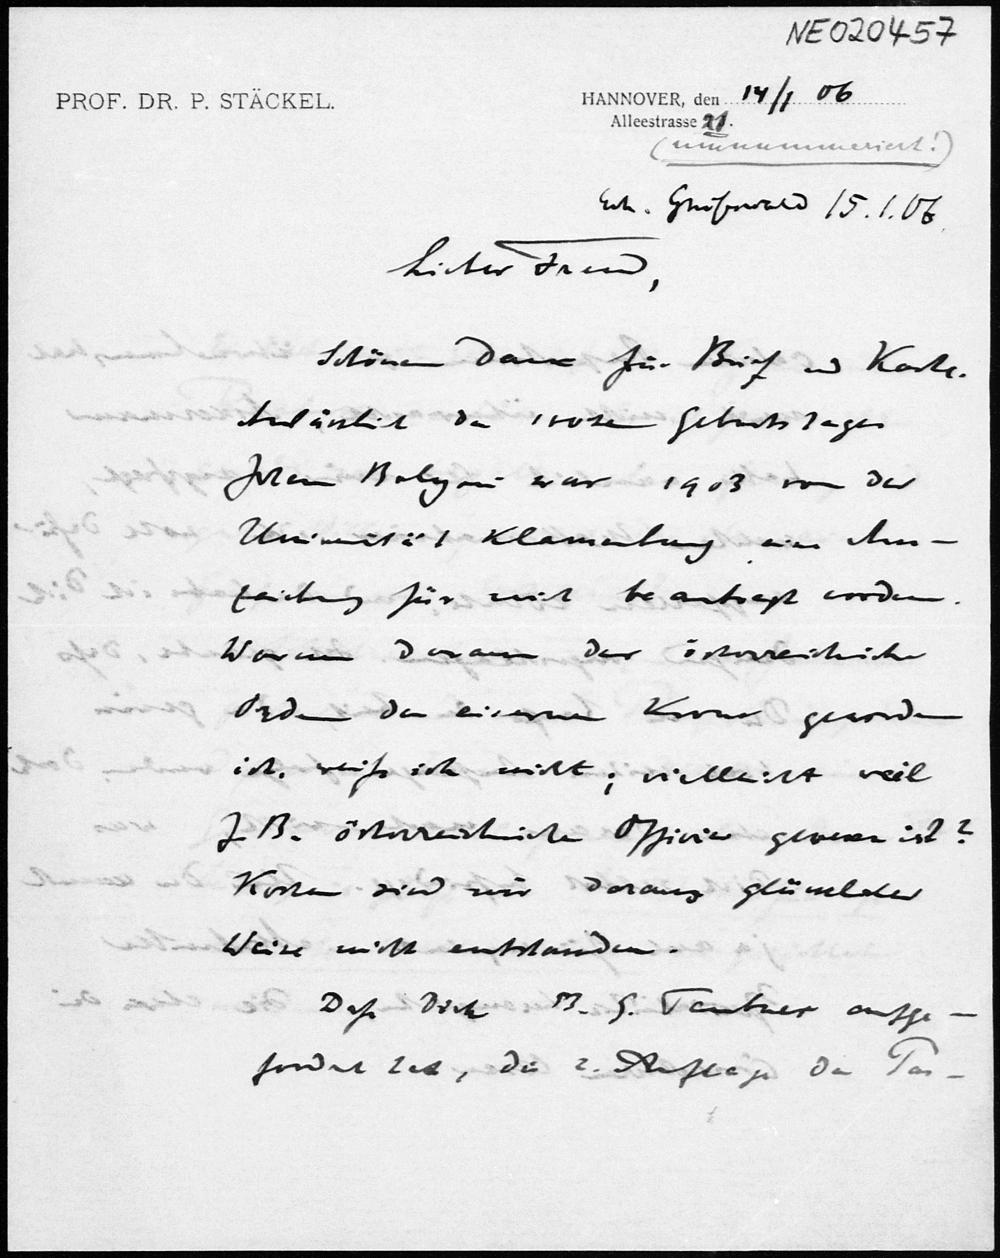 NE020457
PROF. DR. P. STÄCKEL.
HANNOVER, den 14/1 06
Alleestrasse 21.
(umnummeriert!)
Erh. Greifswald 15.1.06.
Lieber Freund,
Schönen Dank für Brief und Karte.
Anlässlich des 100ten Geburtstages
Johann Bolyai war 1903 von der
Universität Klausenburg eine Aus-
zeichnung für mich beantragt worden.
Warum daraus der österreichische
Orden der eisernen Krone geworden
ist, weiß ich nicht; vielleicht weil
J. B. österreichischer Offizier gewesen ist?
Kosten sind mir daraus glücklicher
Weise nicht entstanden.
Daß Dich B. G. Teubner aufge-
fordert hat, die 2. Auflage der